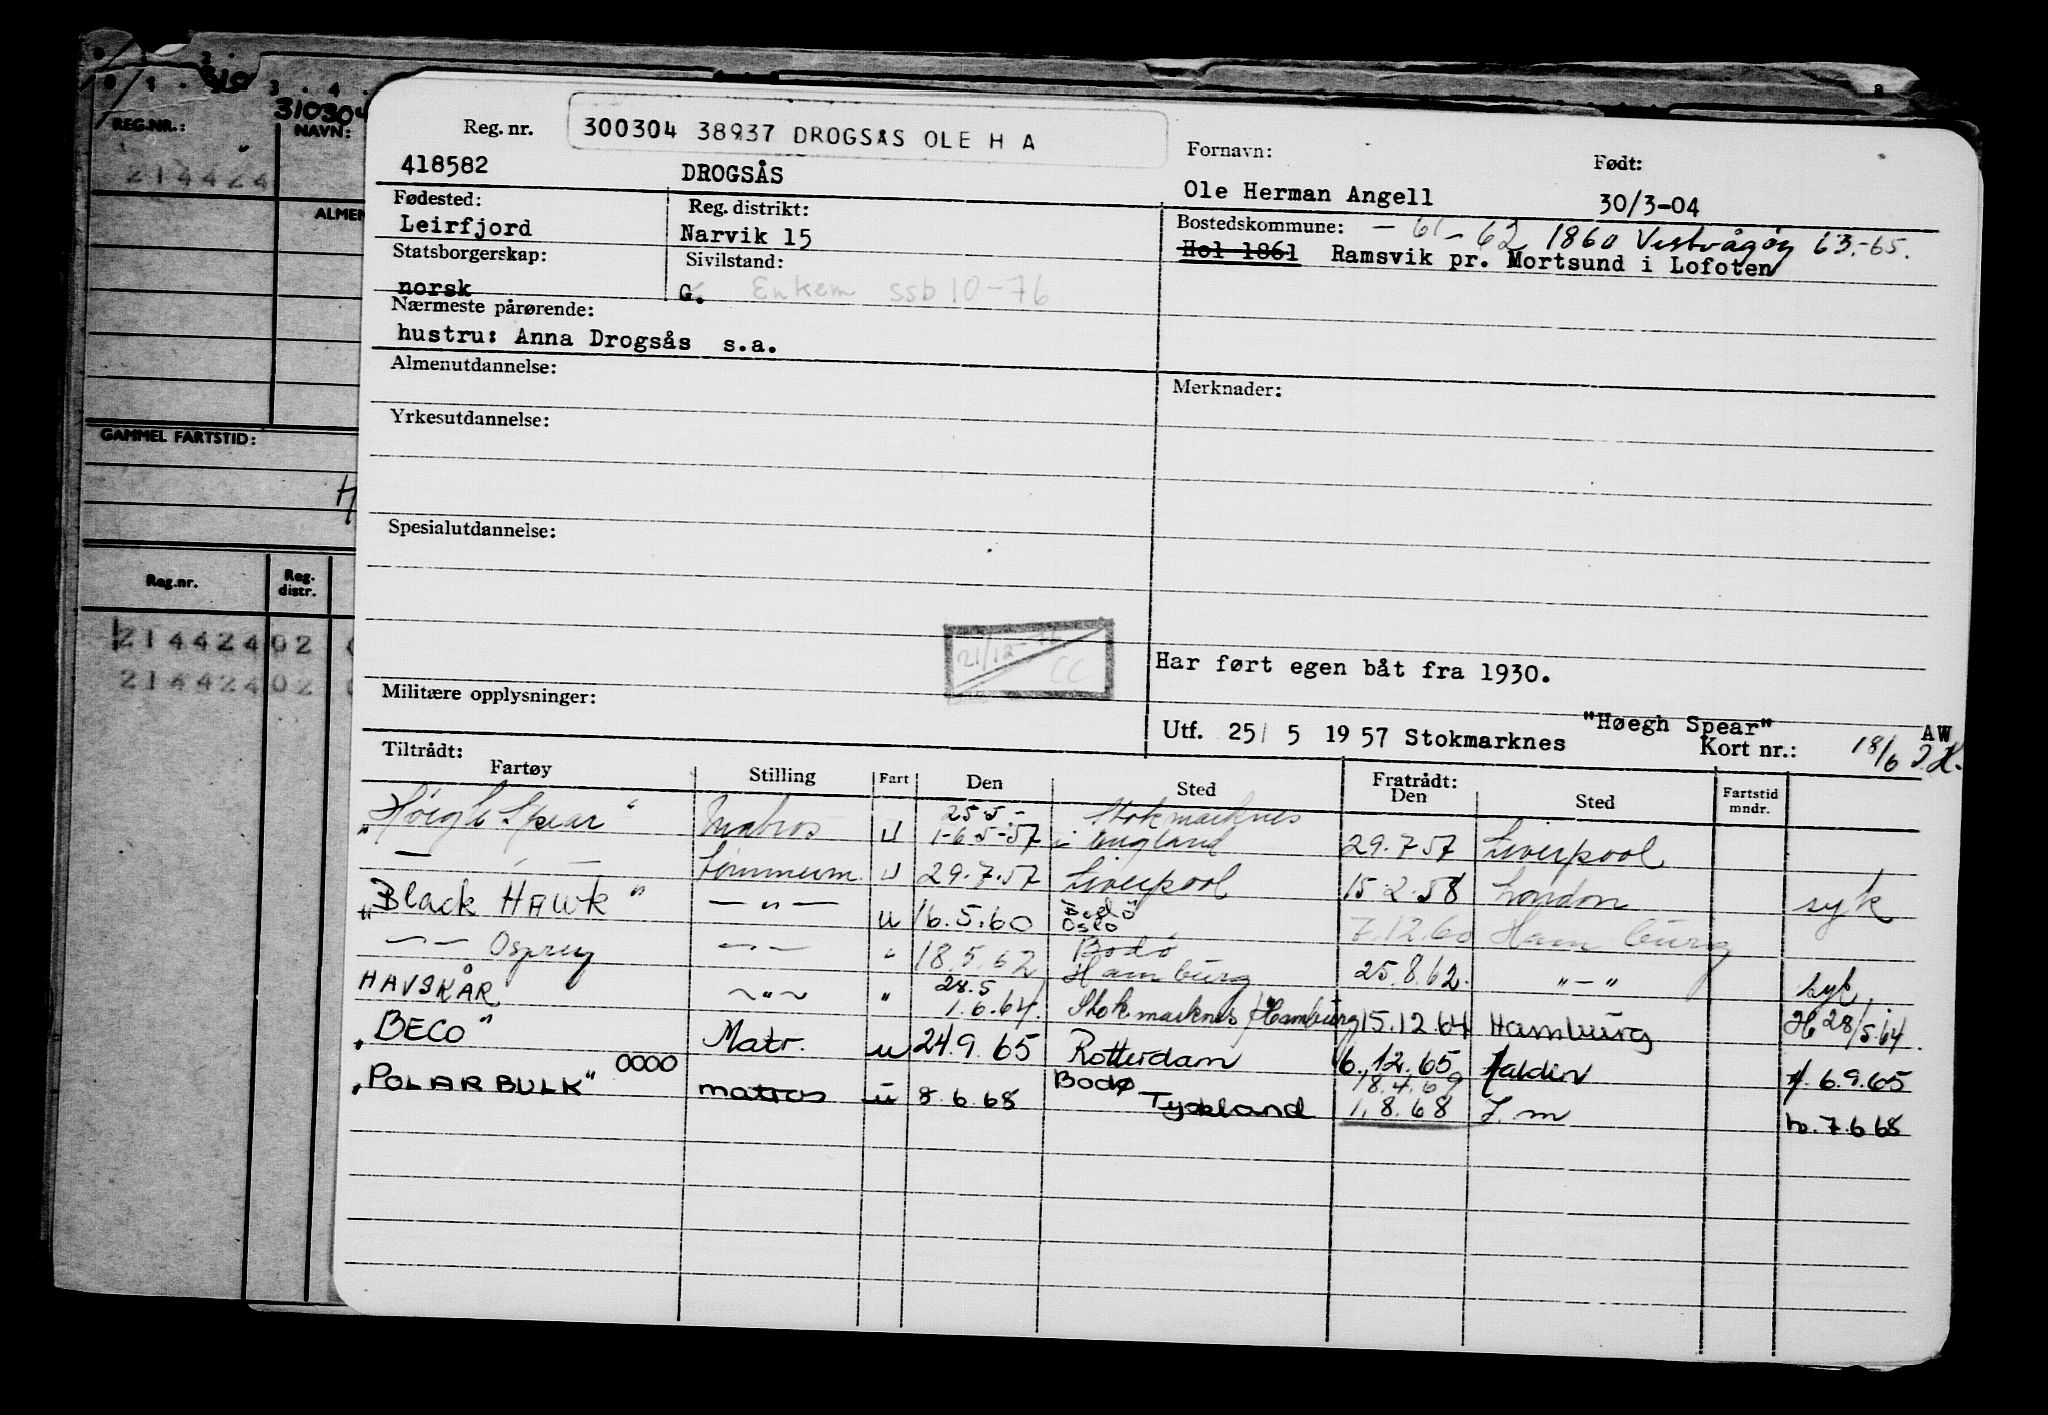 310304
REG.NR.: NAVN:
214424
ALMEN
GAMMEL FARTSTID:
H
Reg.nr. Reg. distr.
214424 02
214424 02
Reg. nr. 300304 38937 DROGSÅS OLE H A
Fornavn: Født:
418582 DROGSÅS Ole Herman Angell 30/3-04
Fødested: Reg. distrikt: Bostedskommune: - 61 - 62 1860 Vestvågøy 63.-65.
Leirfjord Narvik 15 Hol 1861 Ramsvik pr. Mortsund i Lofoten
Statsborgerskap: Sivilstand:
norsk G. Enkem ssb 10-76
Nærmeste pårørende:
hustru: Anna Drogsås s.a.
Almenutdannelse: Merknader:
Yrkesutdannelse:
Spesialutdannelse:
21/12-76
CC
Har ført egen båt fra 1930.
Militære opplysninger:
Utf. 25/ 5 1957 Stokmarknes "Høegh Spear" AW
Kort nr.: 18/6
Tiltrådt: Fratrådt:
Fartøy Stilling Fart Den Sted Den Sted Fartstid mndr.
25.5.- Stokmarknes
"Høegh Spear" Matros u 1-6-5-57 i England 29.7.57 Liverpool
— " — Tømmerm. u 29.7.57 Liverpool 15.2.58 London syk
"Black HAWK" — " — u 16.5.60 Bodø Oslo 7.12.60 Hamburg
— " — Osprey — " — " 18.5.62 Bodø Hamburg 25.8.62. " — " syk.
HAVSKÅR ~ " ~ " 28.5 1.6.64. Stokmarknes / Hamburg 15.12 64 Hamburg H 28/5.64.
"BECO" Matr. u 24.9.65 Rotterdam 6.12.65 Halden 6.9.65
"POLARBULK" 0000 matros u 8.6.68 Bodø Tyskland 18.4.69 1.8.68 h. 7.6.68